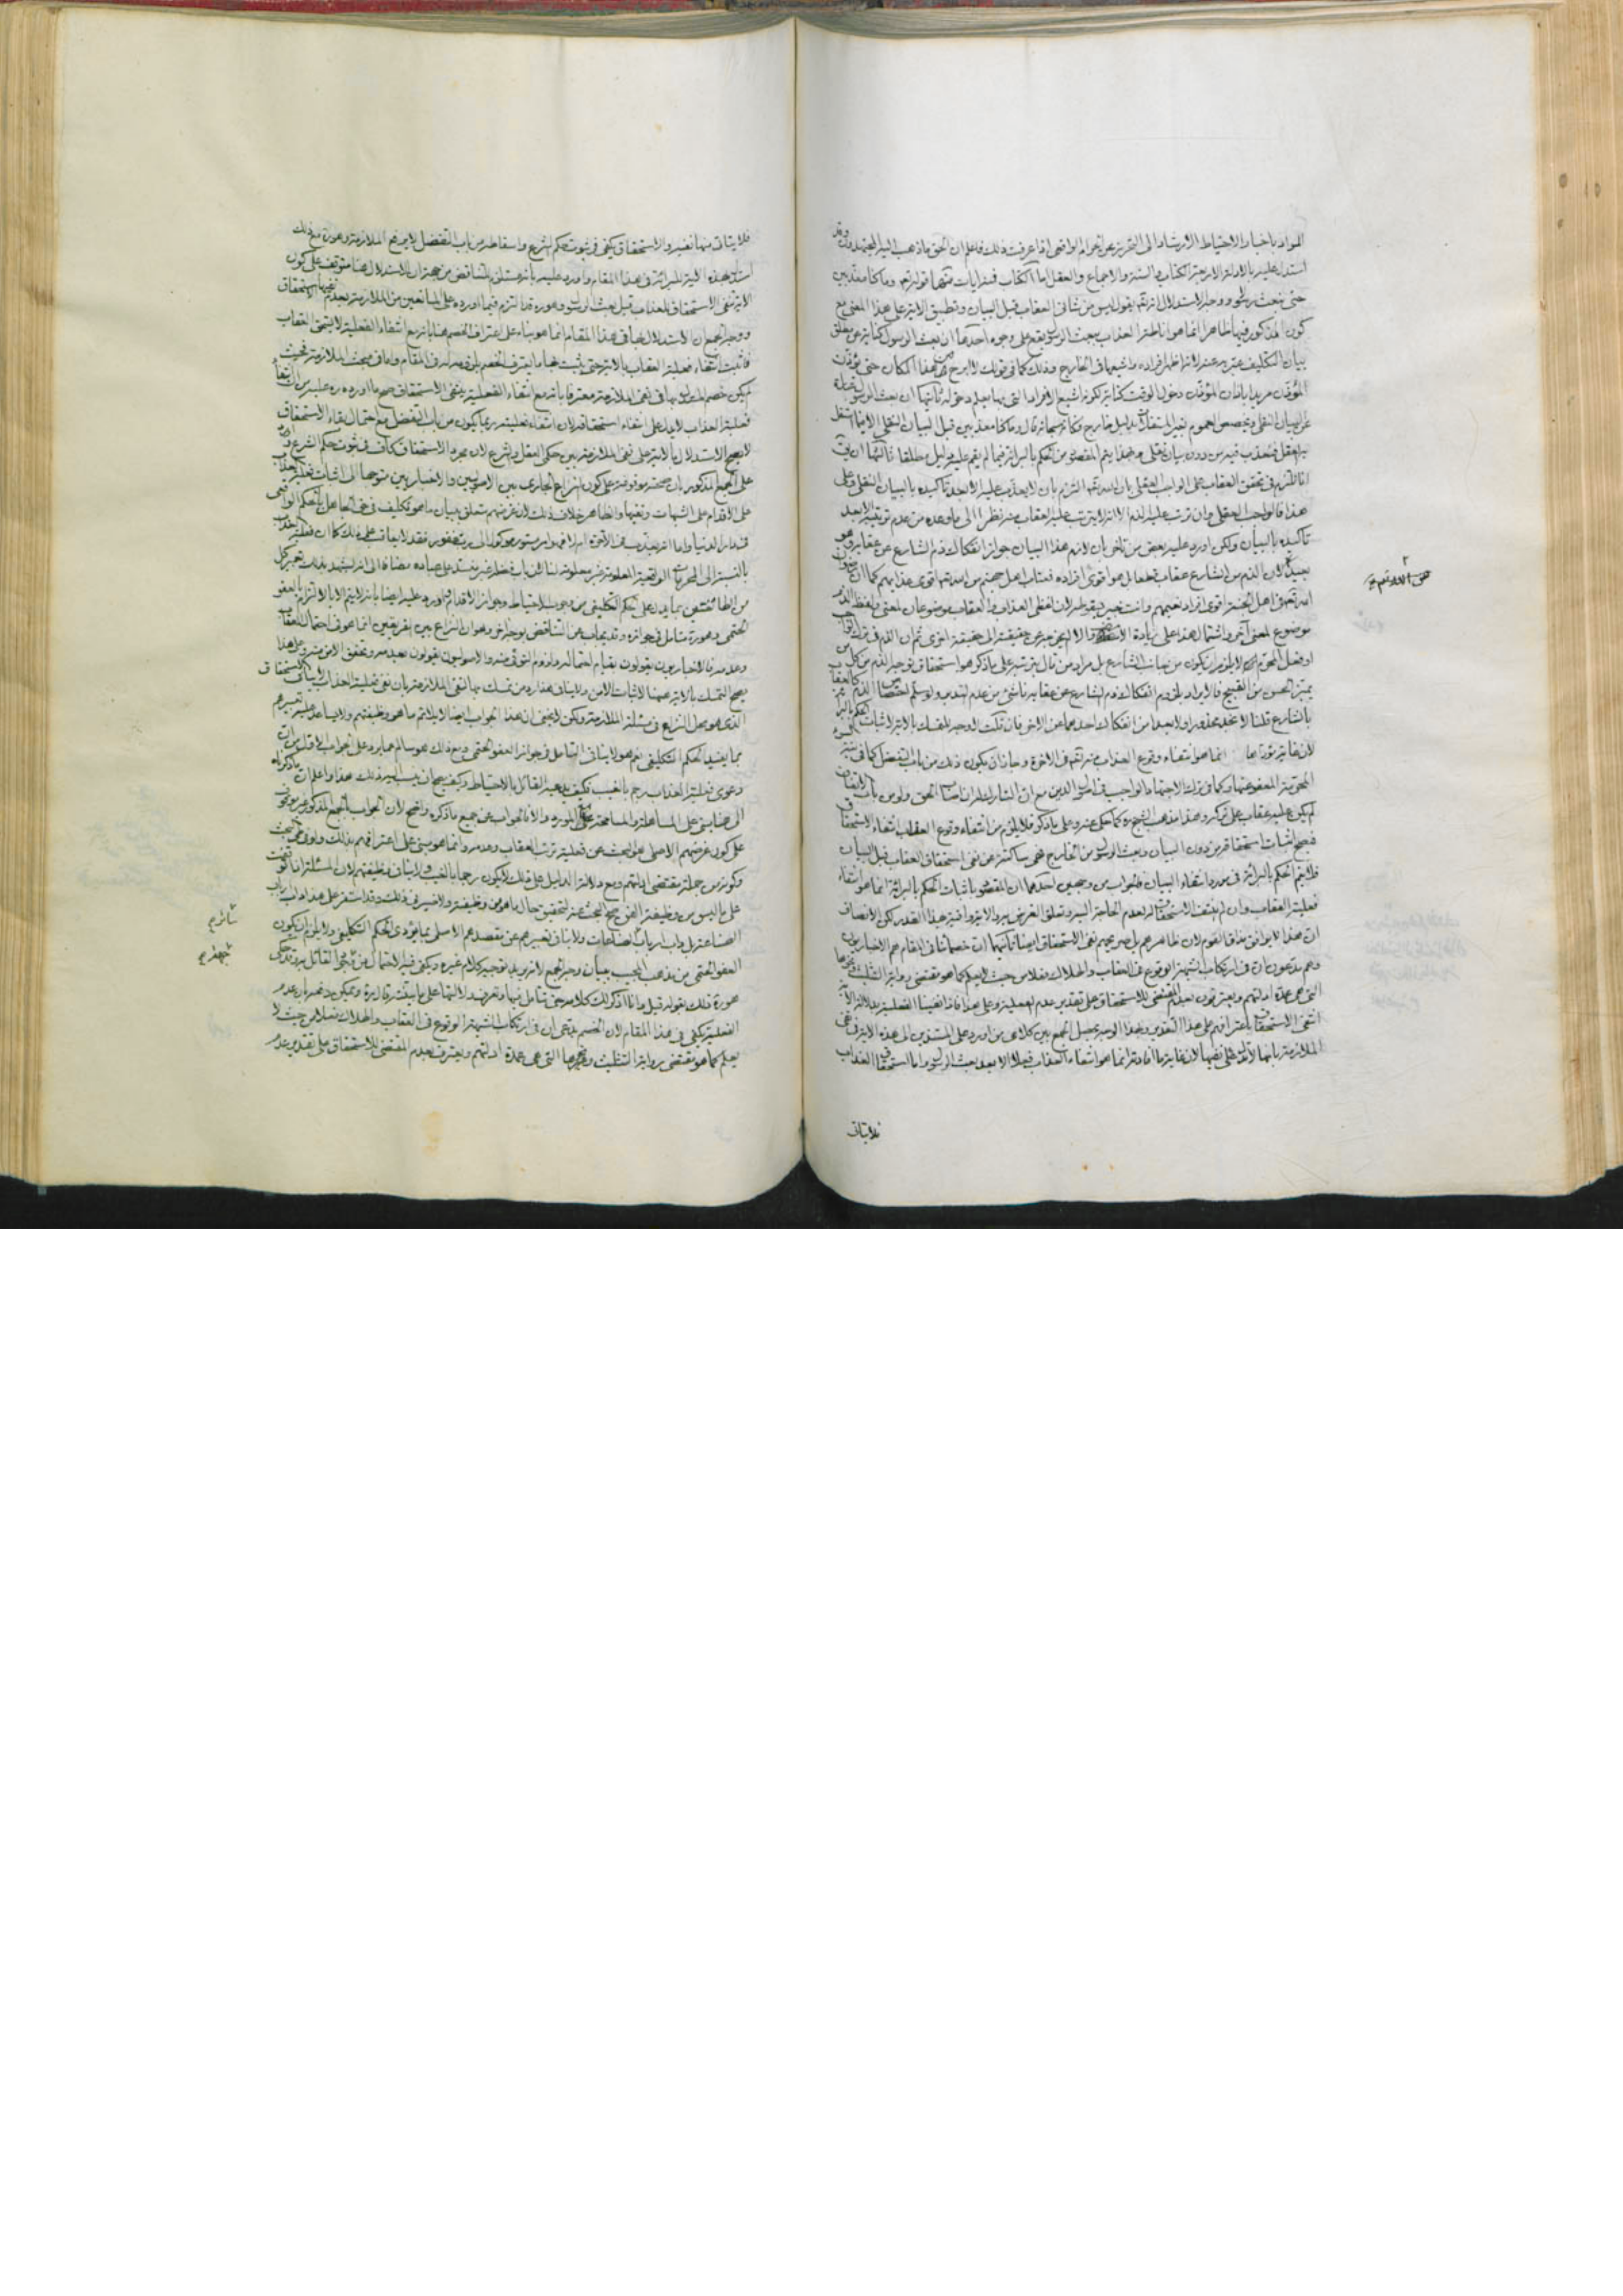 المراد باخبار الاحتياط الارشاد الى التحرز عن الحرام الواقعى اذا عرفت ذلك فاعلم ان الحق ما ذهب اليه المجتهدون وقد
استدل عليه بالادلة الاربعة الكتاب والسنة والاجماع والعقل اما الكتاب فبايات منها قوله تعالى وما كنا معذبين
حتى نبعث رسولا ووجه الاستدلال انه تعالى يقول ليس من شانى العقاب قبل البيان وتطبيق الاية على هذا المعنى مع
كون المذكور فيها ظاهرا انما هو اناطة العذاب ببعث الرسول يقع على وجوه احدها ان بعث الرسول كناية عن مطلق
بيان التكليف عبر به عنه لانه اظهر افراده واشيعها فى الخارج وذلك كما فى قولك لا ابرح من هذا المكان حتى يؤذن
المؤذن مريدا باذان المؤذن دخول الوقت كناية لكونه اشيع الافراد التى بها يعلم دخوله ثانيها ان بعث الرسول عبارة
عن البيان النقلى وتخصيص العموم بغير المستقلات بدليل خارج فكانه سبحانه قال وما كنا معذبين قبل البيان النقلى الا فيما استقل
به العقل فنعذب فيه من دون بيان نقلى وبهذا يتم المقصود من الحكم بالبرائة فيما لم يقم عليه دليل مطلقا ثالثها ان
تحقق العقاب على الواجب العقلى بان الله تعالى التزم بان لا يعذب عليه الا بعد تاكيده بالبيان النقلى وعلى
هذا فالواجب العقلى وان ترتب عليه الذم الا انه لا يترتب عليه العقاب منه نظرا الى ما وعده من عدم ترتبه الا بعد
تاكيده بالبيان ولكن اورد عليه بعض من تاخر بان لازم هذا البيان جواز انفكاك ذم الشارع عن عقابه وهو
بعيد لان الذم من الشارع عقاب قطعا بل هو اقوى افراده فعتاب اهل جهنم من الله تعالى اقوى عذابهم كما ان
الله تعالى فى اهل الجنة اقوى افراد نعيمهم وانت خبير بسقوطه لان لفظى العذاب والعقاب موضوعان لمعنى ولفظ الذم
موضوع لمعنى آخر واشتمال هذا على زيادة لا يخرجه عن حقيقته الى حقيقة اخرى ثم ان الذم فى ترك
او فعل الحرام لا يلزم ان يكون من جانب الشارع بل مراد من قال بترتبه على ما ذكر هو استحقاق توجيه الذم من كل من
يميز الحسن من القبيح فالايراد بلزوم انفكاك ذم الشارع عن عقابه ناشئ من عدم التدبر ولو سلم اختصاص الذم
بالشارع قلنا لا نجد محذورا ولا بعدا من انفكاك احدهما عن الاخر فان قلت لا وجه للتمسك بالاية لاثبات الحكم بالبرائة
لان غاية مؤداها انما هو انتفاء وقوع العذاب منه تعالى فى الاخرة وجاز ان يكون ذلك من باب التفضل كما فى نية
المعصية المعفو عنها وكما فى ترك الاجتهاد الواجب فى اصول الدين مع ان التارك اذا صادف الحق ولو من باب الاتفاق
لم يكن عليه عقاب على تركه وهذا مذهب الشيخ ره كما حكى عنه وعلى ما ذكر فلا يلزم من انتفاء وقوع العقاب انتفاء الاستحقاق
فيصح اثبات استحقاقه من دون البيان وبعث الرسول من الخارج فهى ساكتة عن نفى استحقاق العقاب قبل البيان
فلا يتم الحكم بالبرائة فى مورد انتفاء البيان فالجواب من وجهين احدهما ان المقصود باثبات الحكم بالبرائة انما هو انتفاء
فعلية العقاب وان لم ينتف الاستحقاق لعدم الحاجة اليه وتعلق الغرض به والاية وافية بهذا القدر لكن الانصاف
ان هذا لا يوافق مذاق القوم لان ظاهرهم بل صريحهم نفى الاستحقاق ايضا ثانيهما ان خصمائنا فى المقام هم الاخباريون
وهم يدعون ان فى ارتكاب الشبهة الوقوع فى العقاب والهلاك فعلا من حيث لا يعلم كما هو مقتضى رواية التثليث ونحوها
التى هى عمدة ادلتهم ويعترفون بعدم المقتضى للاستحقاق على تقدير عدم الفعلية وعلى هذا فاذا نفينا الفعلية بدلالة الاية
انتفى الاستحقاق باعترافهم على هذا التقدير وبهذا الوجه يحصل الجمع بين كلامى من اورد على المستدلين بهذه الاية فى نفى
الملازمة بانها لا تدل على نفيها لان غاية ما افادته انما هو انتفاء العذاب فعلا الا بعد بعث الرسول واما استحقاق العذاب
فلا يتاتى
فلا يتاتى منها نفيه والاستحقاق يكفى فى ثبوت حكم الشرع واسقاطه من باب التفضل لا يرفع الملازمة وهو ره مع ذلك
استدل بهذه الاية للبرائة فى هذا المقام واورد عليه بانه مستلزم للتناقض من جهة ان الاستدلال هنا متوقف على كون
الاية نفى الاستحقاق للعذاب قبل بعث الرسول وهو ره قد التزم فيما اورده على المانعين من الملازمة بعدم نفيها الاستحقاق
ووجه الجمع ان الاستدلال بها فى هذا المقام انما هو بناء على اعتراف الخصم هنا بانه مع انتفاء الفعلية لا يستحق العقاب
فاثبت انتفاء فعلية العقاب بالاية حتى يثبت بها ما يعترف الخصم بلزومه له فى المقام واما فى مبحث الملازمة فحيث
لم يكن خصمه المستدل بها فى نفى الملازمة معترفا بانه مع انتفاء الفعلية ينتفى الاستحقاق صح ما اورده ره عليه من ان انتفاء
فعلية العذاب لا يدل على انتفاء استحقاقه لان انتفاء فعليته ربما يكون من باب التفضل مع احتمال بقاء الاستحقاق
لا يصح الاستدلال بالاية على نفى الملازمة بين حكمى العقل والشرع لان مجرد الاستحقاق كاف فى ثوت حكم الشرع
على الجمع المذكور بان صحته موقوفة على كون النزاع الجارى بين الاصوليين والاخباريين متوجها الى اثبات فعلية العذاب
على الاقدام على الشبهات ونفيها والظاهر خلاف ذلك لان غرضهم متعلق ببيان ما هو تكليف فى حق الجاهل بالحكم الواقعى
فى دار الدنيا واما انه يعذب فى الآخرة ام لا فهو امر مستور موكول الى رب غفور فقد لا يعاقب على ذلك كما ان فعلية العذاب
بالنسبة الى المحرمات الواقعية المعلومة غير معلومة لنا لان باب فضله غير منسد على عباده مضافا الى انه يشهد بذلك تعبير كل
من الطائفتين بما يدل على الحكم التكليفى من وجوب الاحتياط وجواز الاقدام واورد عليه ايضا بانه لا يتم الا بالالتزام بالعفو
الحتمى وهو ره متامل فى جوازه وقد يجاب عن التناقض بوجه اخر وهو ان النزاع بين الفريقين انما هو فى احتمال العقاب
وعدمه فالاخباريون يقولون بقيام احتماله ولزوم التوقى منه والاصوليون يقولون بعدمه وتحقق الامن منه وعلى هذا
يصح التمسك بالاية هيهنا لاثبات الامن ولا ينافى هذا رد من تمسك بها لنفى الملازمة بان نفى فعلية العذاب لا ينافى الاستحقاق
الذى هو محل النزاع فى مسئلة الملازمة ولكن لا يخفى ان هذا الجواب ايضا لا يلائم ما هو وظيفتهم ولا يساعد عليه تعبيرهم
مما يفيد الحكم التكليفى نعم هو لا ينافى التامل فى جواز العفو الحتمى ومع ذلك هو سالم عما يرد على الجواب الاول من ان
دعوى فعلية العذاب رجم بالغيب فكيف يدعيه القائل بالاحتياط وكيف يصح ان ينسب اليه ذلك هذا واعلم ان ما ذكرناه
الى هنا مبنى على المساهلة والمسامحة مع المورد والا فالجواب عن جميع ما ذكره واضح لان الجواب بالجمع المذكور غير موقوف
على كون غرضهم الاصلى هو البحث عن فعلية ترتب العقاب وعدمه وانما هو مبنى على اعترافهم بذلك ولو فى البحث
وكونه من جملة مقتضى ادلتهم ومع دلالة الدليل على ذلك لا يكون رجما بالغيب ولا ينافى وظيفتهم لان المسئلة اذا توقفت
على ما ليس من وظيفة الفن صح البحث عنه لتحقيق حال ما هو من وظيفته ولا ضير فى ذلك وقد استقر على هذا داب ارباب
الصناعة بل داب ارباب الصناعات ولا ينافى تعبيرهم عن مقصدهم الاصلى بما يؤدى الحكم التكليفى ولا يلزم ان يكون
العفو الحتمى من مذهب المجيب ببيان وجه الجمع لانه يريد توجيه كلام غيره ويكفى فيه الاحتمال من القائل به وقد حكى
هو ره ذلك بقوله قبل وانا اذكر لك كلامه حتى تتامل فيها وتعرف دلالتها على ما يثبته قال ره ويمكن دفعه بان عدم
الفعلية يكفى فى هذا المقام لان الخصم يدعى ان فى ارتكاب الشبهة الوقوع فى العقاب والهلاك فعلا من حيث لا
يعلم كما هو مقتضى رواية التثليث ونحوها التى هى عمدة ادلتهم ويعترف بعدم المقتضى للاستحقاق على تقدير عدم